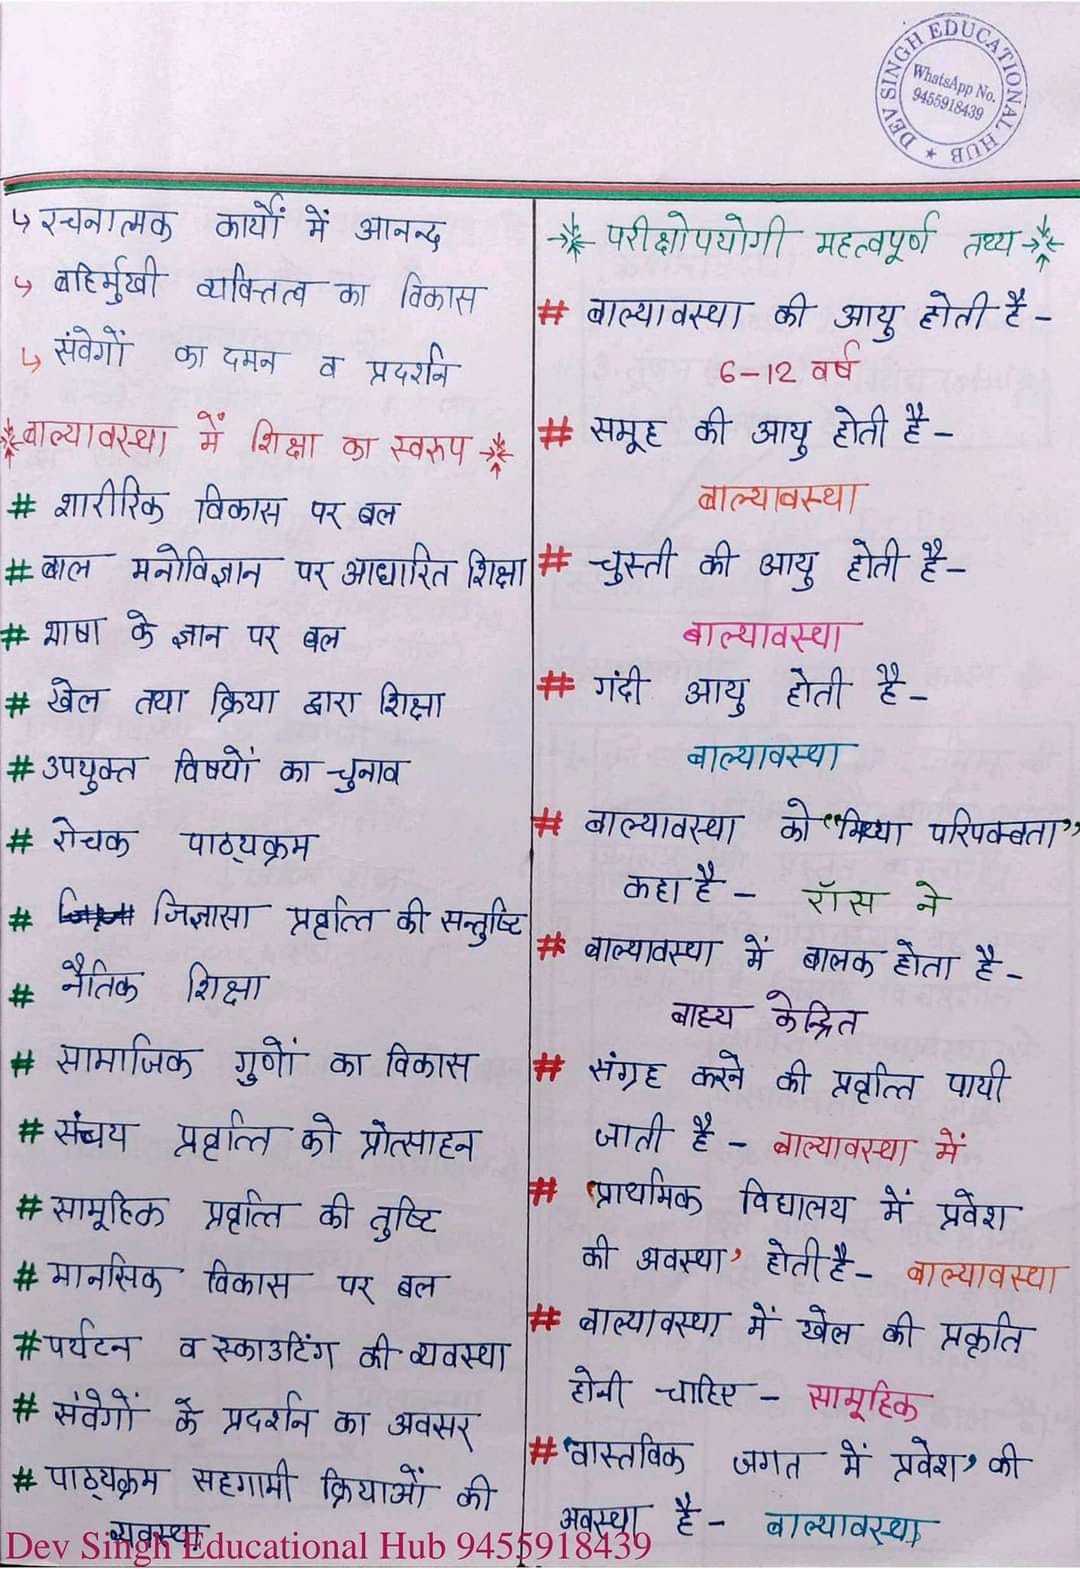 DEV SINGH EDUCATIONAL HUB
WhatsApp No.
9455918439
↳ रचनात्मक कार्यों में आनन्द
↳ बहिर्मुखी व्यक्तित्व का विकास
↳ संवेगों का दमन व प्रदर्शन
बाल्यावस्था में शिक्षा का स्वरूप
# शारीरिक विकास पर बल
# बाल मनोविज्ञान पर आधारित शिक्षा
# भाषा के ज्ञान पर बल
# खेल तथा क्रिया द्वारा शिक्षा
# उपयुक्त विषयों का चुनाव
# रोचक पाठ्यक्रम
# जिज्ञासा प्रवृत्ति की सन्तुष्टि
# नैतिक शिक्षा
# सामाजिक गुणों का विकास
# संचय प्रवृत्ति को प्रोत्साहन
# सामूहिक प्रवृत्ति की तुष्टि
# मानसिक विकास पर बल
# पर्यटन व स्काउटिंग की व्यवस्था
# संवेगों के प्रदर्शन का अवसर
# पाठ्यक्रम सहगामी क्रियाओं की
व्यवस्था
परीक्षोपयोगी महत्वपूर्ण तथ्य
# बाल्यावस्था की आयु होती है -
6-12 वर्ष
# समूह की आयु होती है -
बाल्यावस्था
# चुस्ती की आयु होती है -
बाल्यावस्था
# गंदी आयु होती है -
बाल्यावस्था
# बाल्यावस्था को "मिथ्या परिपक्वता"
कहा है - रॉस ने
# बाल्यावस्था में बालक होता है -
बाह्य केन्द्रित
# संग्रह करने की प्रवृत्ति पायी
जाती है - बाल्यावस्था में
# 'प्राथमिक विद्यालय में प्रवेश
की अवस्था' होती है - बाल्यावस्था
# बाल्यावस्था में खेल की प्रकृति
होनी चाहिए - सामूहिक
# 'वास्तविक जगत में प्रवेश' की
अवस्था है - बाल्यावस्था
Dev Singh Educational Hub 9455918439